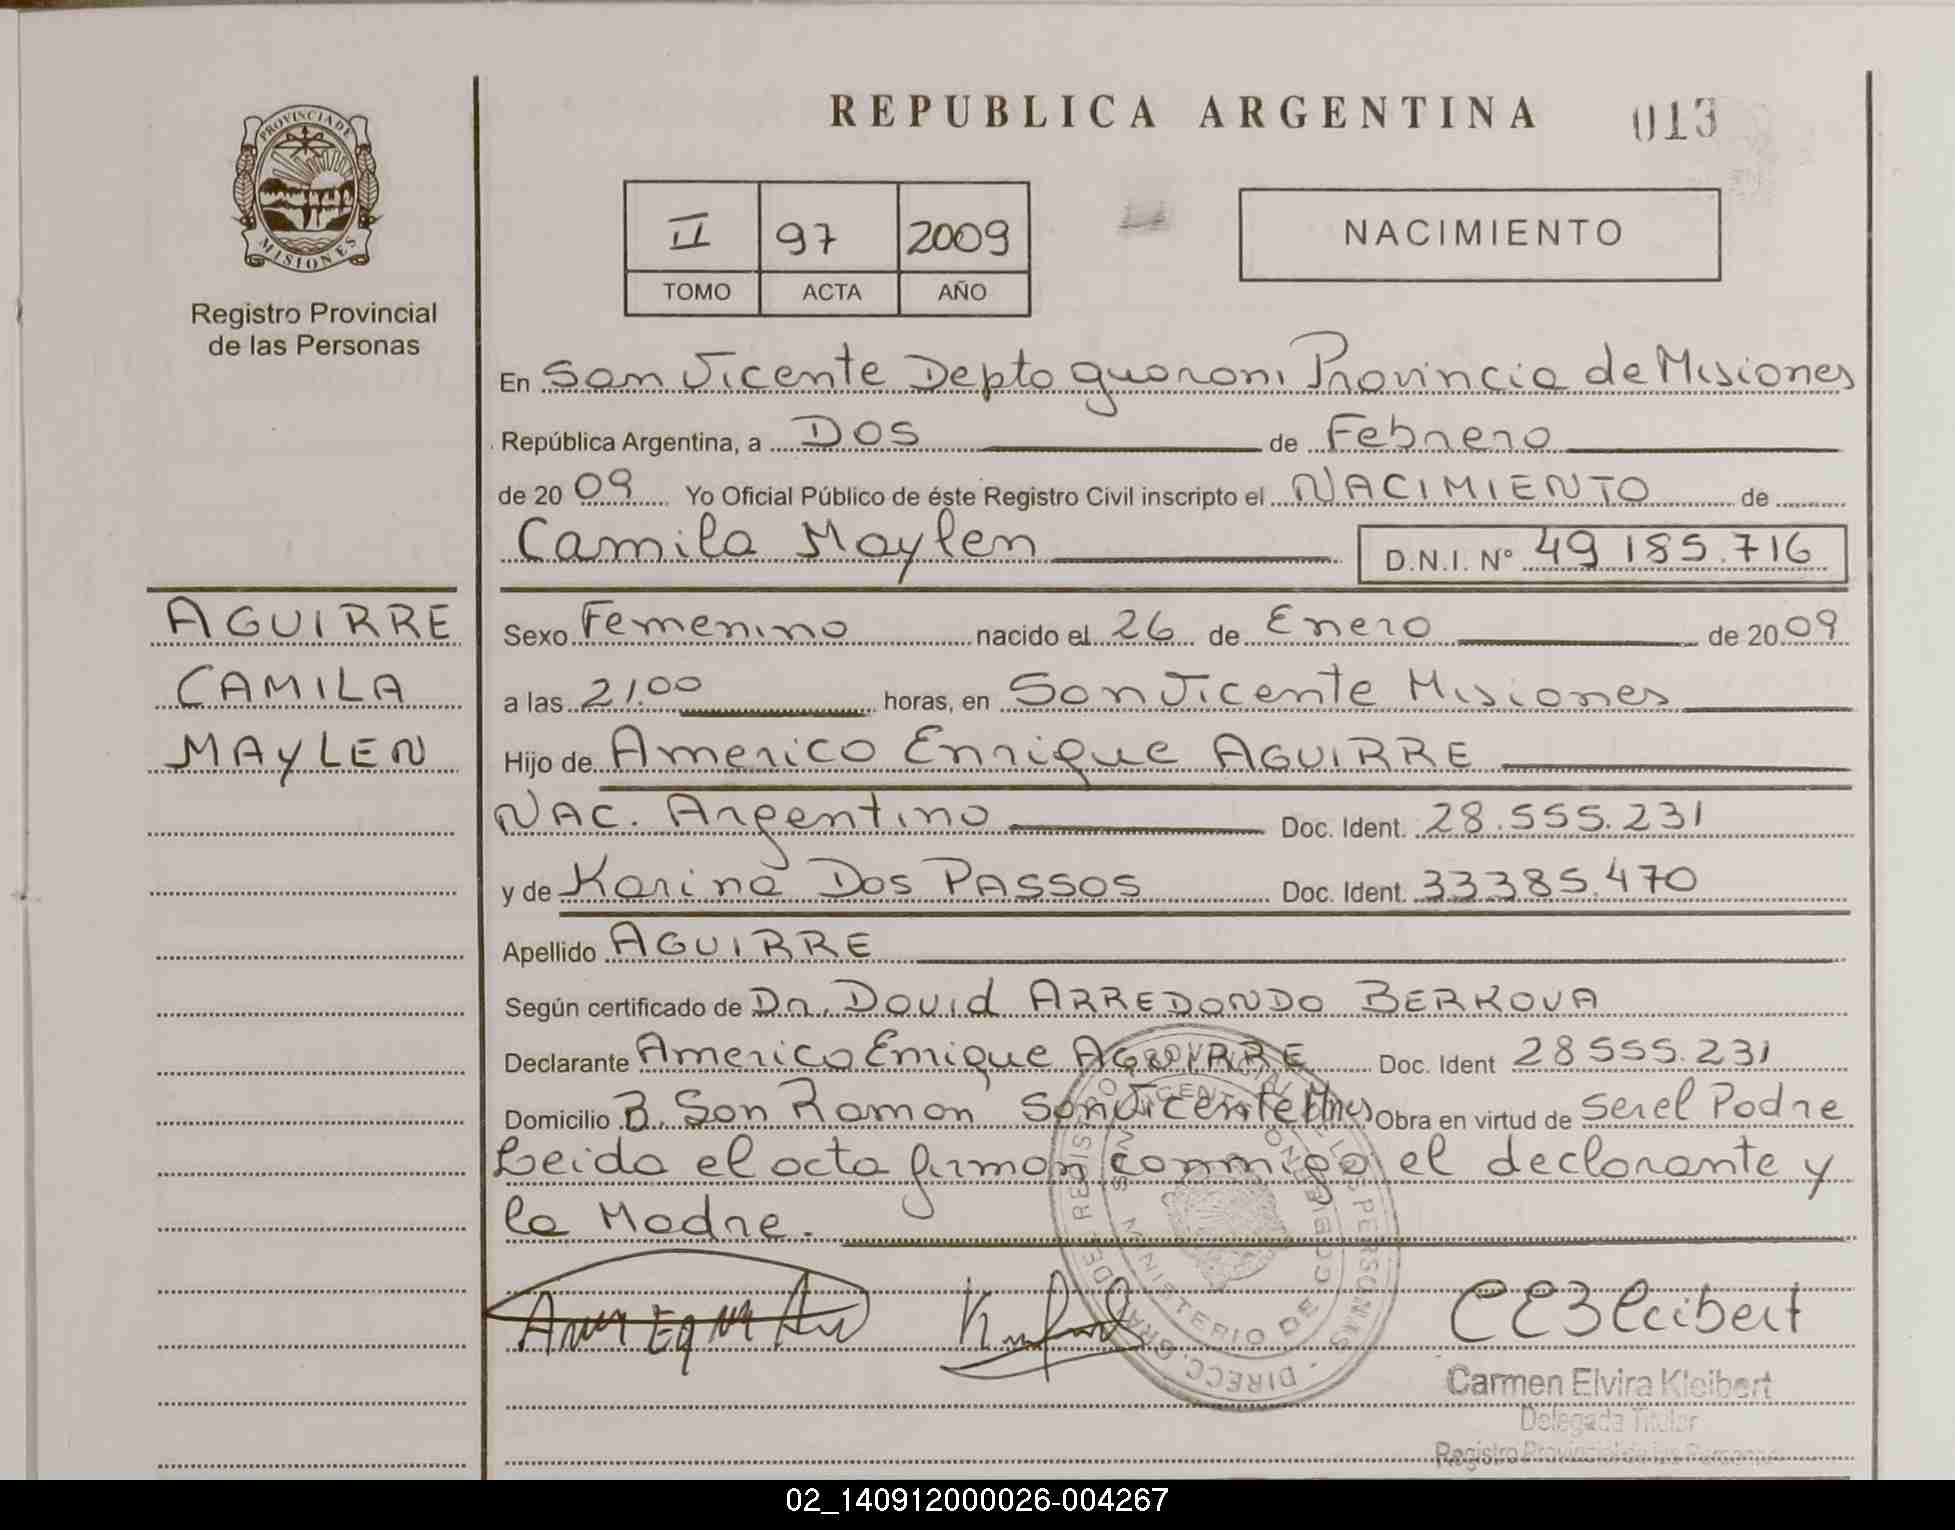 REPUBLICA ARGENTINA
013
PROVINCIA DE
MISIONES
Registro Provincial
de las Personas
II 97 2009
TOMO ACTA AÑO
NACIMIENTO
En San Vicente Depto guarani Provincia de Misiones
República Argentina, a DOS de Febrero
de 2009 Yo Oficial Público de éste Registro Civil inscripto el NACIMIENTO de
Camila Maylen D.N.I. Nº 49 185.716
AGUIRRE
CAMILA
MAYLEN
Sexo Femenino nacido el 26 de Enero de 2009
a las 21.00 horas, en San Vicente Misiones
Hijo de Americo Enrique AGUIRRE
NAC. Argentino Doc. Ident. 28.555.231
y de Karina Dos PASSOS Doc. Ident. 33385.470
Apellido AGUIRRE
Según certificado de Dr. David ARREDONDO BERKOVA
Declarante Americo Enrique AGUIRRE Doc. Ident 28555.231
Domicilio B. San Ramon San Vicente Mnes Obra en virtud de ser el Padre
Leida el acta firman conmigo el declarante y
la Madre.
CEKleibert
Carmen Elvira Kleibert
Delegada Titular
Registro Provincial de las Personas
02_140912000026-004267